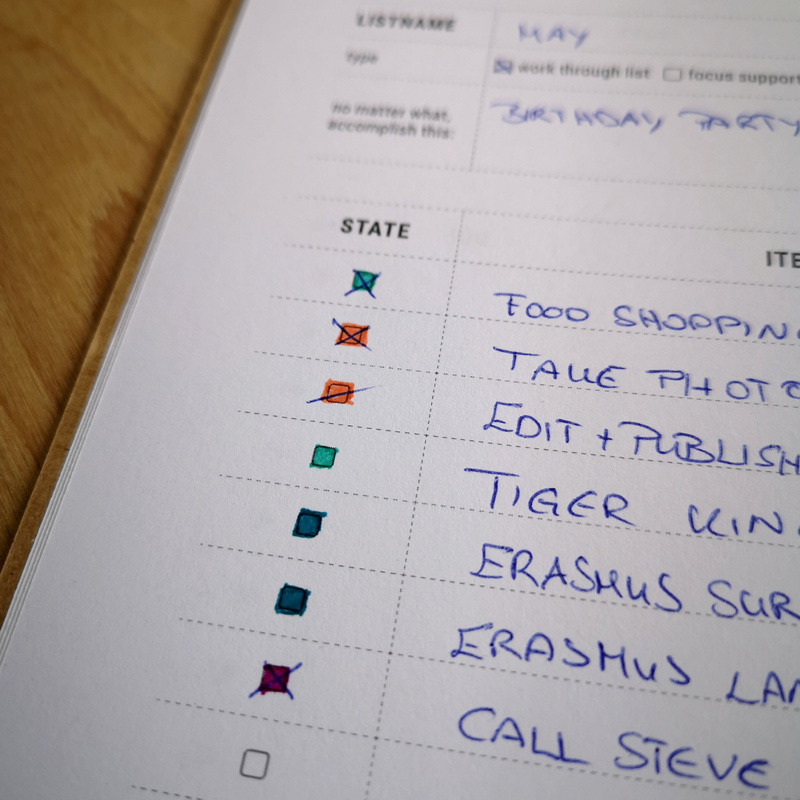 LISTNAME MAY
type work through list focus support
no matter what, accomplish this: BIRTHDAY PARTY
STATE ITE
FOOD SHOPPING
TAKE PHOTO
EDIT + PUBLISH
TIGER KIN
ERASMUS SUR
ERASMUS LAN
CALL STEVE